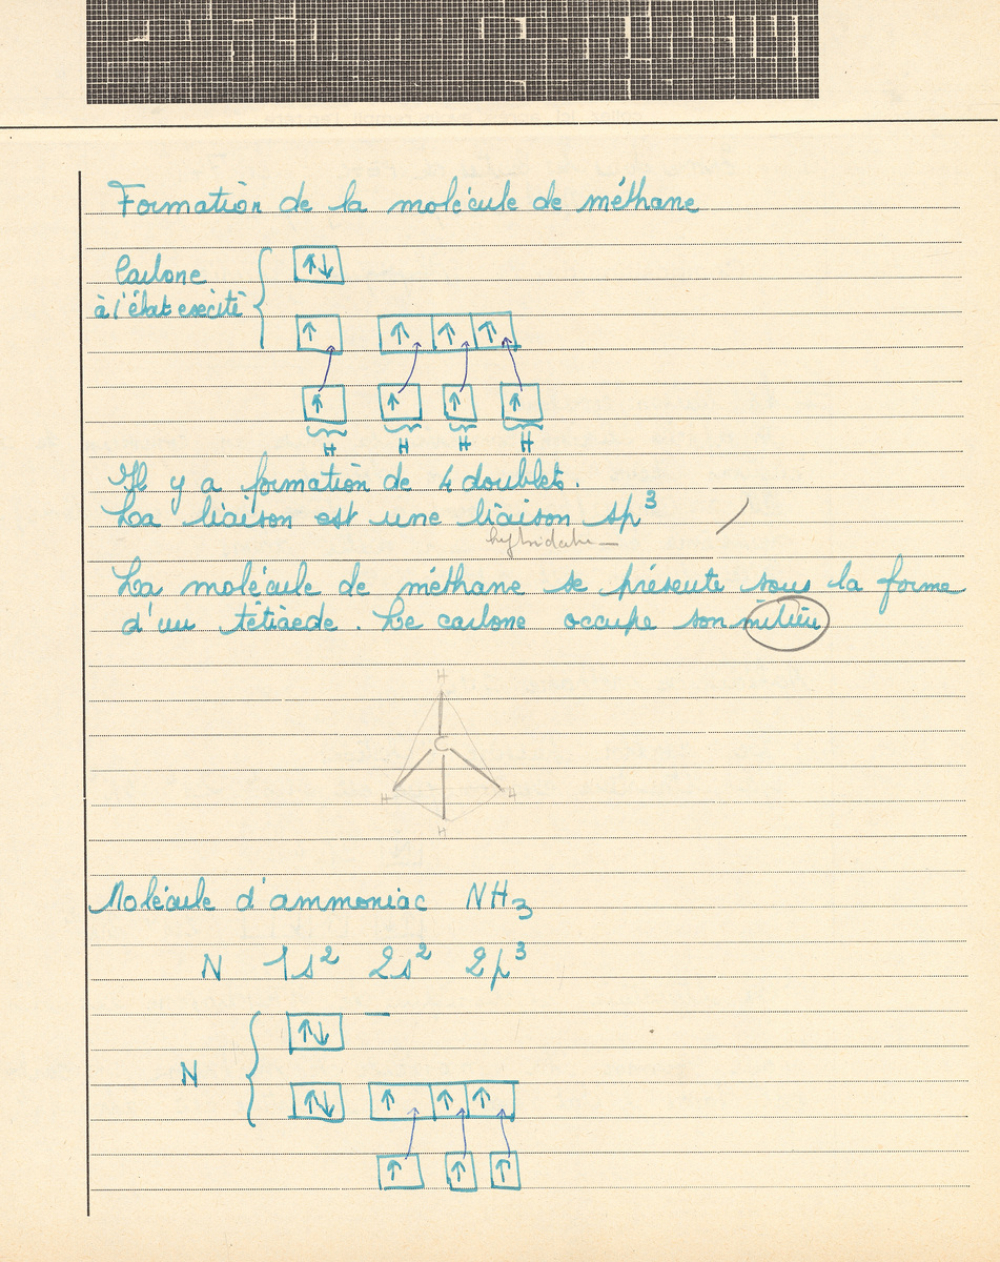 Formation de la molécule de méthane
Carbone
à l'état excité
↑↓
↑ ↑ ↑ ↑
↑ ↑ ↑ ↑
H H H H
Il y a formation de 4 doublets.
La liaison est une liaison sp³
La molécule de méthane se présente sous la forme
d'un tétraede. Le carbone occupe son milieu
H
C
H H
H
Molécule d'ammoniac NH₃
N 1s² 2s² 2p³
↑↓
N
↑↓ ↑ ↑ ↑
↑ ↑ ↑